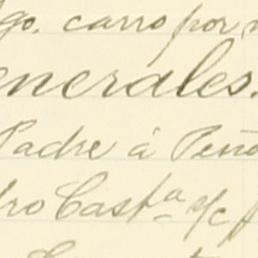 go. carro por
enerales.
Padre á Peño
dro Castª y/c